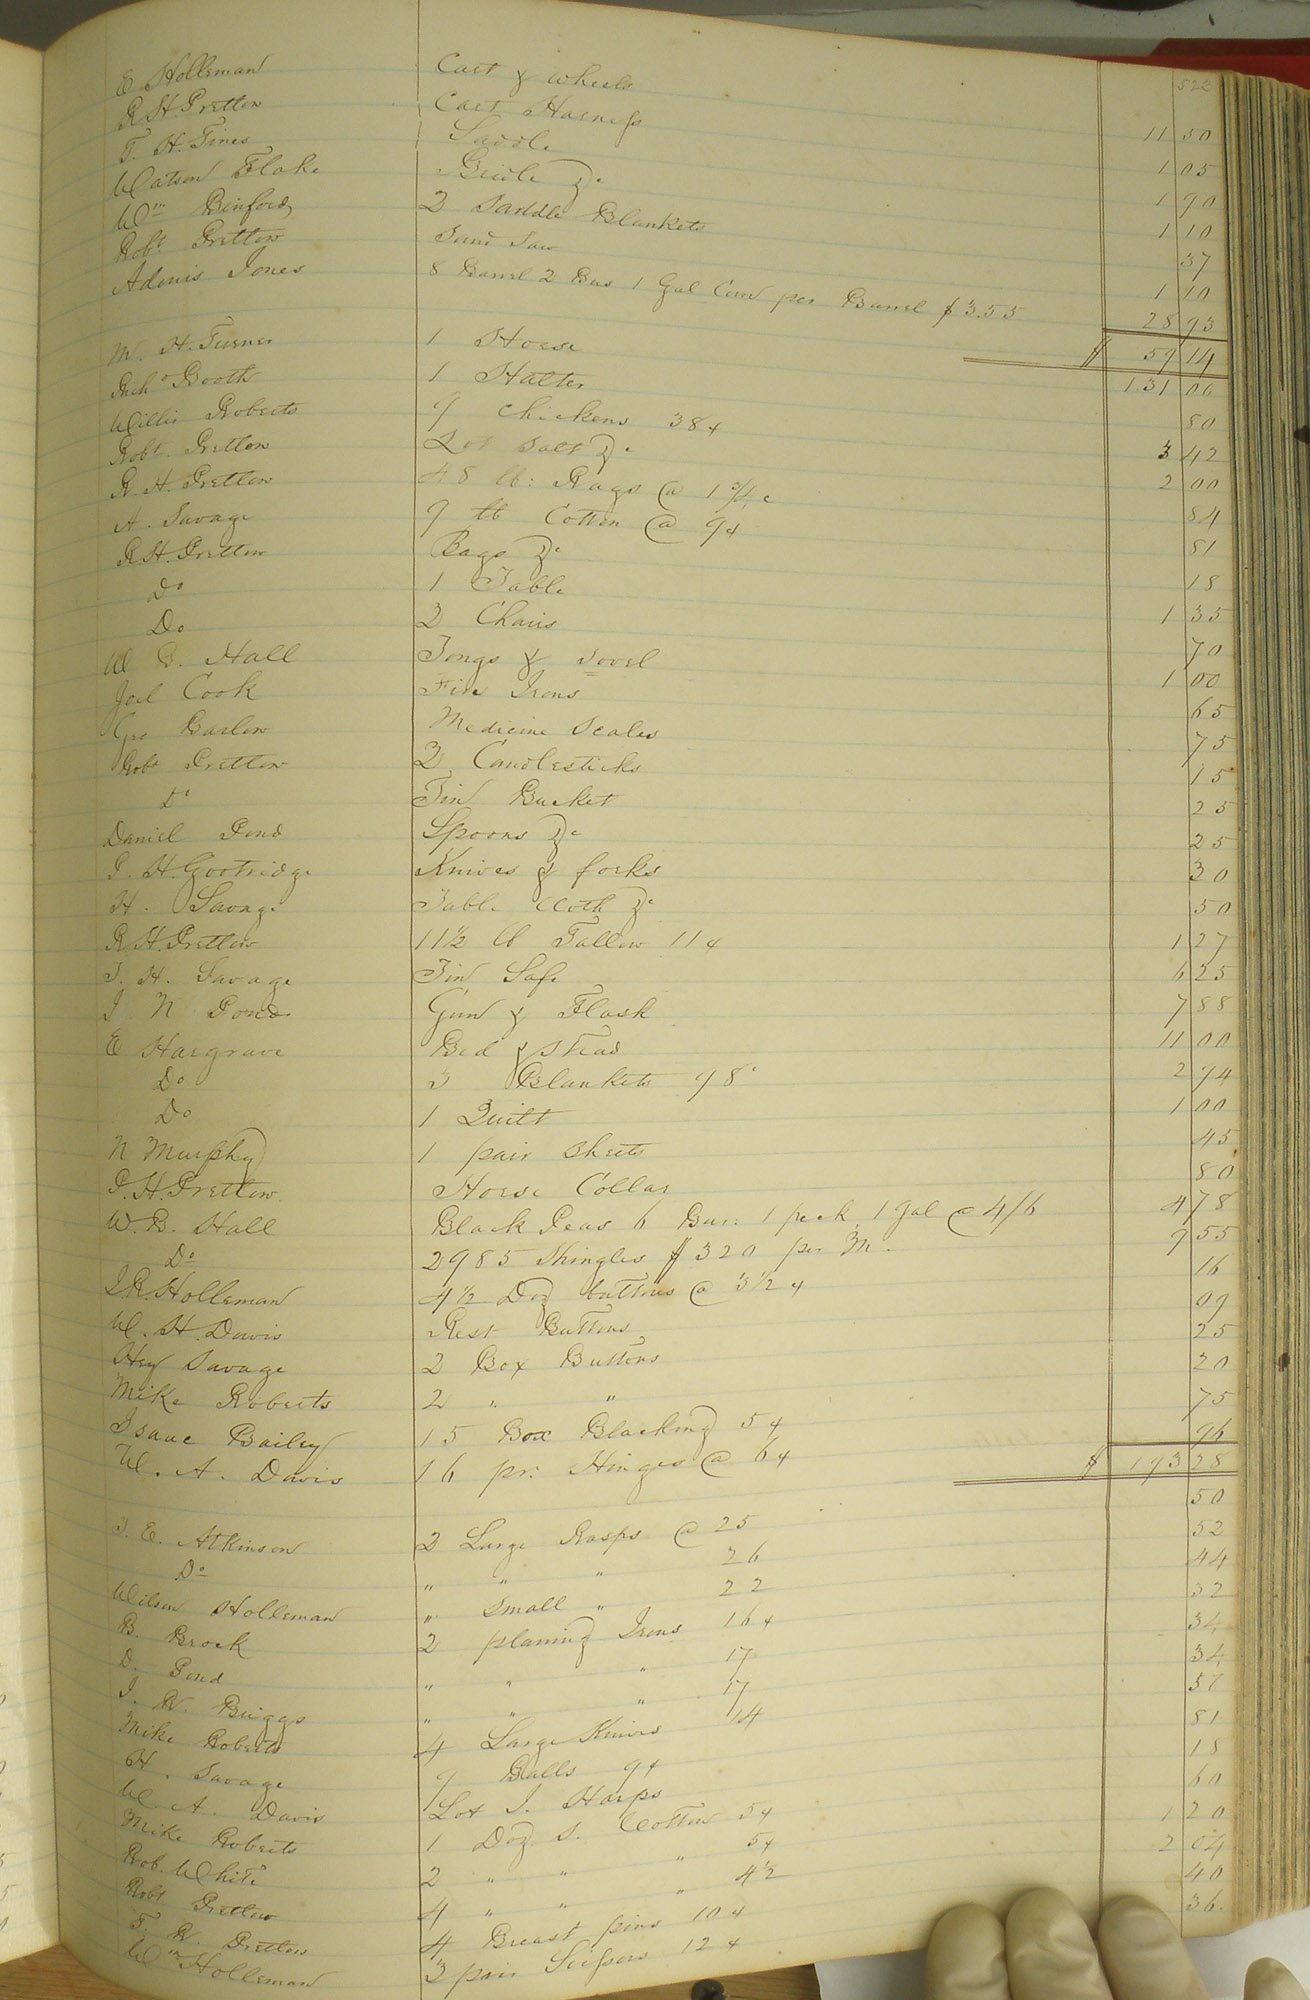 523
E Holleman Cart & wheels 11 50
R. H. Pretlow Cart Harness 1 05
T. H. Tines Saddle 1 90
Watson Flake Bridle &c 1 10
Wm Binford 2 Saddle Blankets 37
Robt Pretlow Hand Saw 1 10
Adonis Jones 8 Barrel 2 Bus 1 Gal Corn per Barrel $3.55 28 93
$ 59 14
M. H. Turner 1 Horse 131 00
Richd Booth 1 Halter 80
Willis Roberts 9 Chickens 38¢ 3 42
Robt Pretlow Lot Salt &c 2 00
R. H. Pretlow 48 lb: Rags @ 1 3/4 c 84
A. Savage 9 lb Cotton @ 9¢ 81
R. H. Pretlow Bags &c 18
Do 1 Table 1 35
Do 2 Chairs 70
W B. Hall Tongs & Sovel 1 00
Joel Cook Fire Irons 65
Geo Barlow Medicine Scales 75
Robt Pretlow 2 Candlesticks 15
Do Tin Bucket 25
Daniel Pond Spoons &c 25
J. H. Gootridge Knives & forks 30
H. Savage Table Cloth &c 50
R. H. Pretlow 11½ lb Tallow 11¢ 1 27
T. H. Savage Tin Safe 6 25
J N Pond Gun & Flask 7 88
E Hargrave Bed & Stead 11 00
Do 3 Blankets 98c 2 94
Do 1 Quilt 1 00
N Murphy 1 pair Sheets 45
P. H. Pretlow Horse Collar 80
W. B. Hall Black Peas 6 Bus: 1 peck 1 Gal @ 4/6 4 78
Do 2985 Shingles $ 3 20 per M. 9 55
J. R. Holleman 4½ Doz buttons @ 3½¢ 16
W. H. Davis Rest Buttons 09
Hy Savage 2 Box Buttons 25
Mike Roberts 2 " " 20
Isaac Bailey 15 Box Blacking 5¢ 75
W. A. Davis 16 pr: Hinges @ 6¢ 96
$ 193 28
T. E. Atkinson 2 Large Rasps @ 25 50
Do " " " 26 52
Wilson Holleman " Small " 22 44
B. Brock 2 planing Irons 16¢ 32
D. Pond " " " 17 34
J. W. Briggs " " " 17 34
Mike Roberts 4 Large Knives 14 57
H. Savage 9 Balls 9¢ 81
W. A. Davis Lot J. Harps 18
Mike Roberts 1 Doz S. Cotton 5¢ 60
Rob. White 2 " " " 5¢ 1 20
Robt Pretlow 4 " " " 4½ 2 04
T. W. Pretlow 4 Breast pins 10¢ 40
Wm Holleman 3 pair Scissors 12¢ 36.